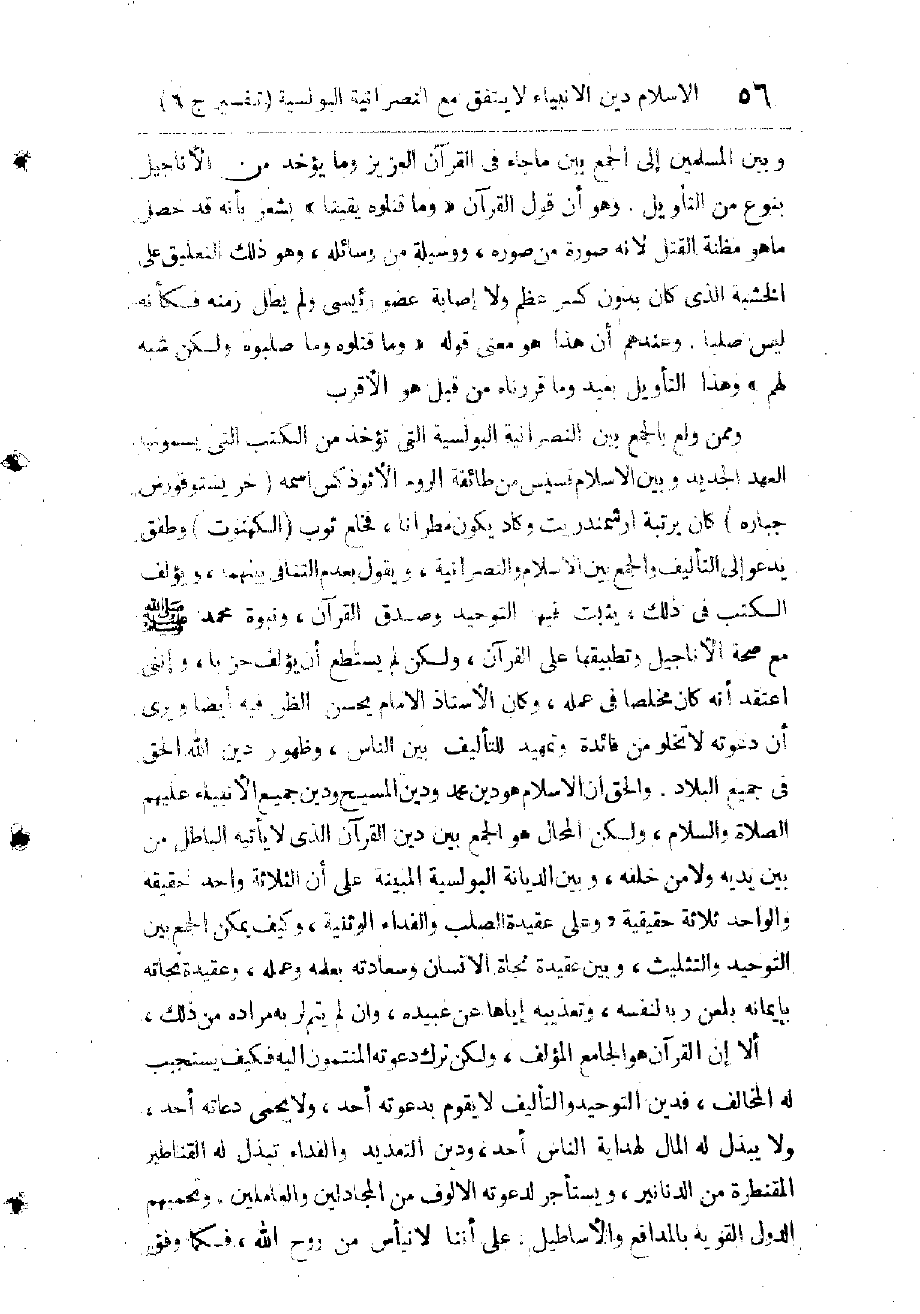 ٥٦ الاسلام دين الانبياء لا يتفق مع النصرانية البولسية (تفسير ج ٦)
وبين المسلمين إلى الجمع بين ماجاء فى القرآن العزيز وما يؤخذ من الأناجيل
بنوع من التأويل . وهو أن قول القرآن « وما قتلوه يقينا » يشعر بأنه قد حصل
ماهو مظنة القتل لانه صورة من صوره ، ووسيلة من وسائله ، وهو ذلك التعليق على
الخشبة الذى كان بدون كسر عظم ولا إصابة عضو رئيسى ولم يطل زمنه فكأنه
ليس صلبا . وعندهم أن هذا هو معنى قوله « وما قتلوه وما صلبوه ولكن شبه
لهم » وهذا التأويل بعيد وما قررناه من قبل هو الأقرب
وممن ولع بالجمع بين النصرانية البولسية التى تؤخذ من الكتب التى يسمونها
العهد الجديد وبين الاسلام قسيس من طائفة الروم الأثوذكس اسمه ( خريستوفورس
جباره ) كان برتبة ارشمندريت وكاد يكون مطرانا ، فخلع ثوب (الكهنوت ) وطفق
يدعو إلى التأليف والجمع بين الاسلام والنصرانية ، ويقول بعدم التنافى بينهما ، ويؤلف
الكتب فى ذلك ، يثبت فيها التوحيد وصدق القرآن ، ونبوة محمد ﷺ
مع صحة الأناجيل وتطبيقها على القرآن ، ولكن لم يستطع أن يؤلف حزبا ، وإننى
اعتقد أنه كان مخلصا فى عمله ، وكان الأستاذ الامام يحسن الظن فيه أيضا ويرى
أن دعوته لاتخلو من فائدة وتمهيد للتأليف بين الناس ، وظهور دين الله الحق
فى جميع البلاد . والحق ان الاسلام هو دين محمد ودين المسيح ودين جميع الأنبياء عليهم
الصلاة والسلام ، ولكن المحال هو الجمع بين دين القرآن الذى لا يأتيه الباطل من
بين يديه ولا من خلفه ، وبين الديانة البولسية المبينة على أن الثلاثة واحد حقيقة
والواحد ثلاثة حقيقية ، وعلى عقيدة الصلب والفداء الوثنية ، وكيف يمكن الجمع بين
التوحيد والتثليث ، وبين عقيدة نجاة الانسان وسعادته بعلمه وعمله ، وعقيدة نجاته
بإيمانه بلعن ربه لنفسه ، وتعذيبه إياها عن عبيده ، وان لم يتم لربه مراده من ذلك ،
ألا إن القرآن هو الجامع المؤلف ، ولكن ترك دعوته المنتمون اليه فكيف يستجيب
له المخالف ، فدين التوحيد والتأليف لا يقوم بدعوته أحد ، ولا يحمى دعاته أحد ،
ولا يبذل له المال لهداية الناس أحد ، ودين التعديد والفداء تبذل له القناطير
المقنطرة من الدنانير ، ويستأجر لدعوته الالوف من المجادلين والعاملين . وتحميهم
الدول القوية بالمدافع والأساطيل . على أننا لانيأس من روح الله ، فكما وفق